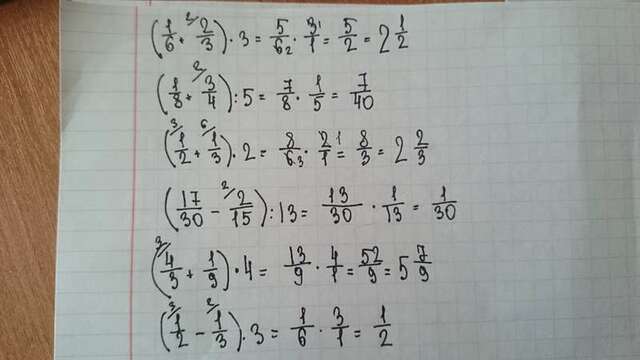 (1/6 + ²⁄2/3) · 3 = 5/6₂ · 3¹/1 = 5/2 = 2 1/2
(1/8 + ²⁄3/4) : 5 = 7/8 · 1/5 = 7/40
(³⁄1/2 + ⁶⁄1/3) · 2 = 8/6₃ · 2¹/1 = 8/3 = 2 2/3
(17/30 - ²⁄2/15) : 13 = 13/30 · 1/13 = 1/30
(³⁄4/3 + 1/9) · 4 = 13/9 · 4/1 = 52/9 = 5 7/9
(³⁄1/2 - ²⁄1/3) · 3 = 1/6 · 3/1 = 1/2